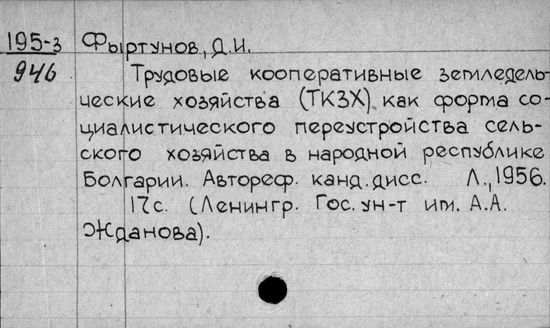 195-3 Фыртунов, Д.И.
946 Трудовые кооперативные земледель-
ческие хозяйства (ТКЗХ) как форма со-
циалистического переустройства сель-
ского хозяйства в народной республике
Болгарии. Автореф. канд. дисс. Л., 1956.
17с. (Ленингр. Гос. ун-т им. А.А.
Жданова).